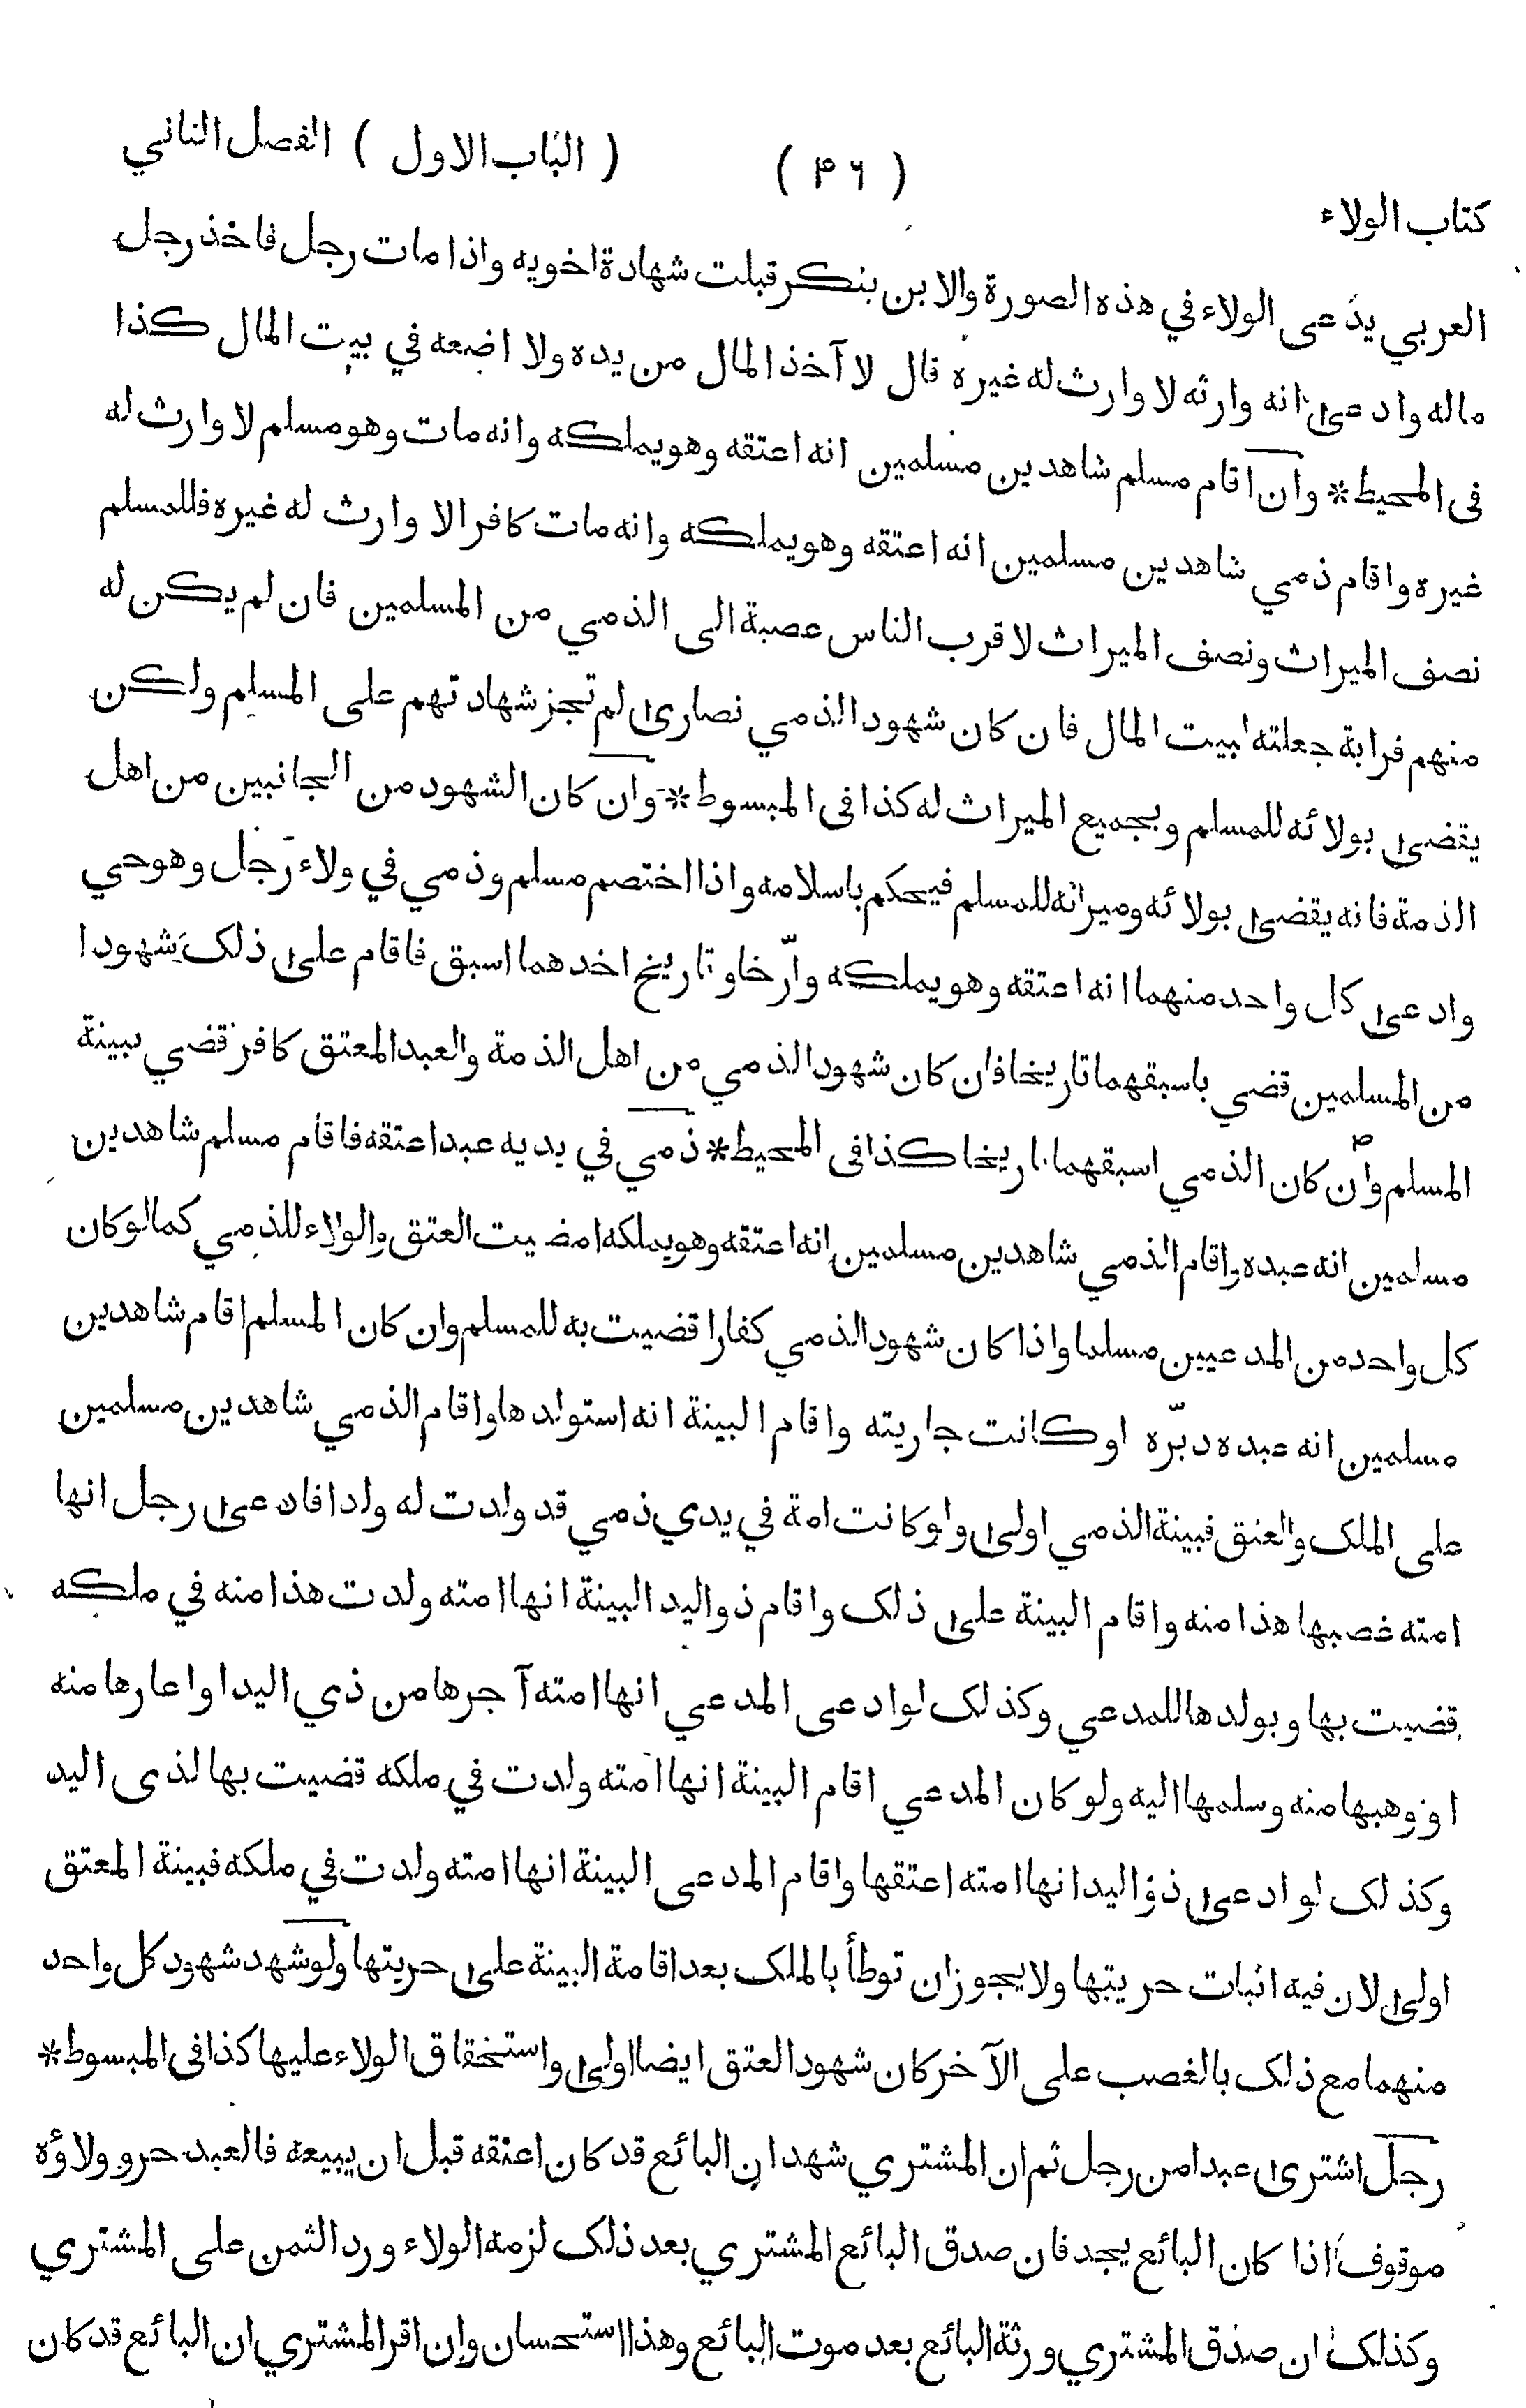 كتاب الولاء ( ۴۶ ) ( الباب الاول ) الفصل الثاني
العربي يدعى الولاء في هذه الصورة والابن ينكر قبلت شهادة اخويه واذا مات رجل فاخذ رجل
ماله وادعى انه وارثه لا وارث له غيره قال لا آخذ المال من يده ولا اضعه في بيت المال كذا
فى المحيط * وان اقام مسلم شاهدين مسلمين انه اعتقه وهو يملكه وانه مات وهو مسلم لا وارث له
غيره واقام ذمي شاهدين مسلمين انه اعتقه وهو يملكه وانه مات كافرا لا وارث له غيره فللمسلم
نصف الميراث ونصف الميراث لاقرب الناس عصبة الى الذمي من المسلمين فان لم يكن له
منهم قرابة جعلته لبيت المال فان كان شهود الذمي نصارى لم تجز شهادتهم على المسلم ولكن
يقضى بولائه للمسلم وبجميع الميراث له كذا فى المبسوط * وان كان الشهود من الجانبين من اهل
الذمة فانه يقضى بولائه وميراثه للمسلم فيحكم باسلامه واذا اختصم مسلم وذمي في ولاء رجل وهو حي
وادعى كل واحد منهما انه اعتقه وهو يملكه وارّخا وتاريخ احدهما اسبق فاقام على ذلك شهودا
من المسلمين قضي باسبقهما تاريخا فان كان شهود الذمي من اهل الذمة والعبد المعتق كافر قضي ببينة
المسلم وان كان الذمي اسبقهما تاريخا كذا فى المحيط * ذمي في يديه عبد اعتقه فاقام مسلم شاهدين
مسلمين انه عبده واقام الذمي شاهدين مسلمين انه اعتقه وهو يملكه امضيت العتق والولاء للذمي كما لو كان
كل واحد من المدعيين مسلما واذا كان شهود الذمي كفارا قضيت به للمسلم وان كان المسلم اقام شاهدين
مسلمين انه عبده دبّره او كانت جاريته واقام البينة انه استولدها واقام الذمي شاهدين مسلمين
على الملك والعتق فبينة الذمي اولى ولو كانت امة في يدي ذمي قد ولدت له ولدا فادعى رجل انها
امته غصبها هذا منه واقام البينة على ذلك واقام ذو اليد البينة انها امته ولدت هذا منه في ملكه
قضيت بها وبولدها للمدعي وكذلك لو ادعى المدعي انها امته آجرها من ذي اليد او اعارها منه
او وهبها منه وسلمها اليه ولو كان المدعي اقام البينة انها امته ولدت في ملكه قضيت بها لذى اليد
وكذلك لو ادعى ذو اليد انها امته اعتقها واقام المدعى البينة انها امته ولدت في ملكه فبينة المعتق
اولى لان فيه اثبات حريتها ولا يجوز ان توطأ بالملك بعد اقامة البينة على حريتها ولو شهد شهود كل واحد
منهما مع ذلك بالغصب على الآخر كان شهود العتق ايضا اولى واستحقاق الولاء عليها كذا فى المبسوط *
رجل اشترى عبدا من رجل ثم ان المشتري شهد ان البائع قد كان اعتقه قبل ان يبيعه فالعبد حر وولاؤه
موقوف اذا كان البائع يجحد فان صدق البائع المشتري بعد ذلك لزمه الولاء ورد الثمن على المشتري
وكذلك ان صدق المشتري ورثة البائع بعد موت البائع وهذا استحسان وان اقر المشتري ان البائع قد كان